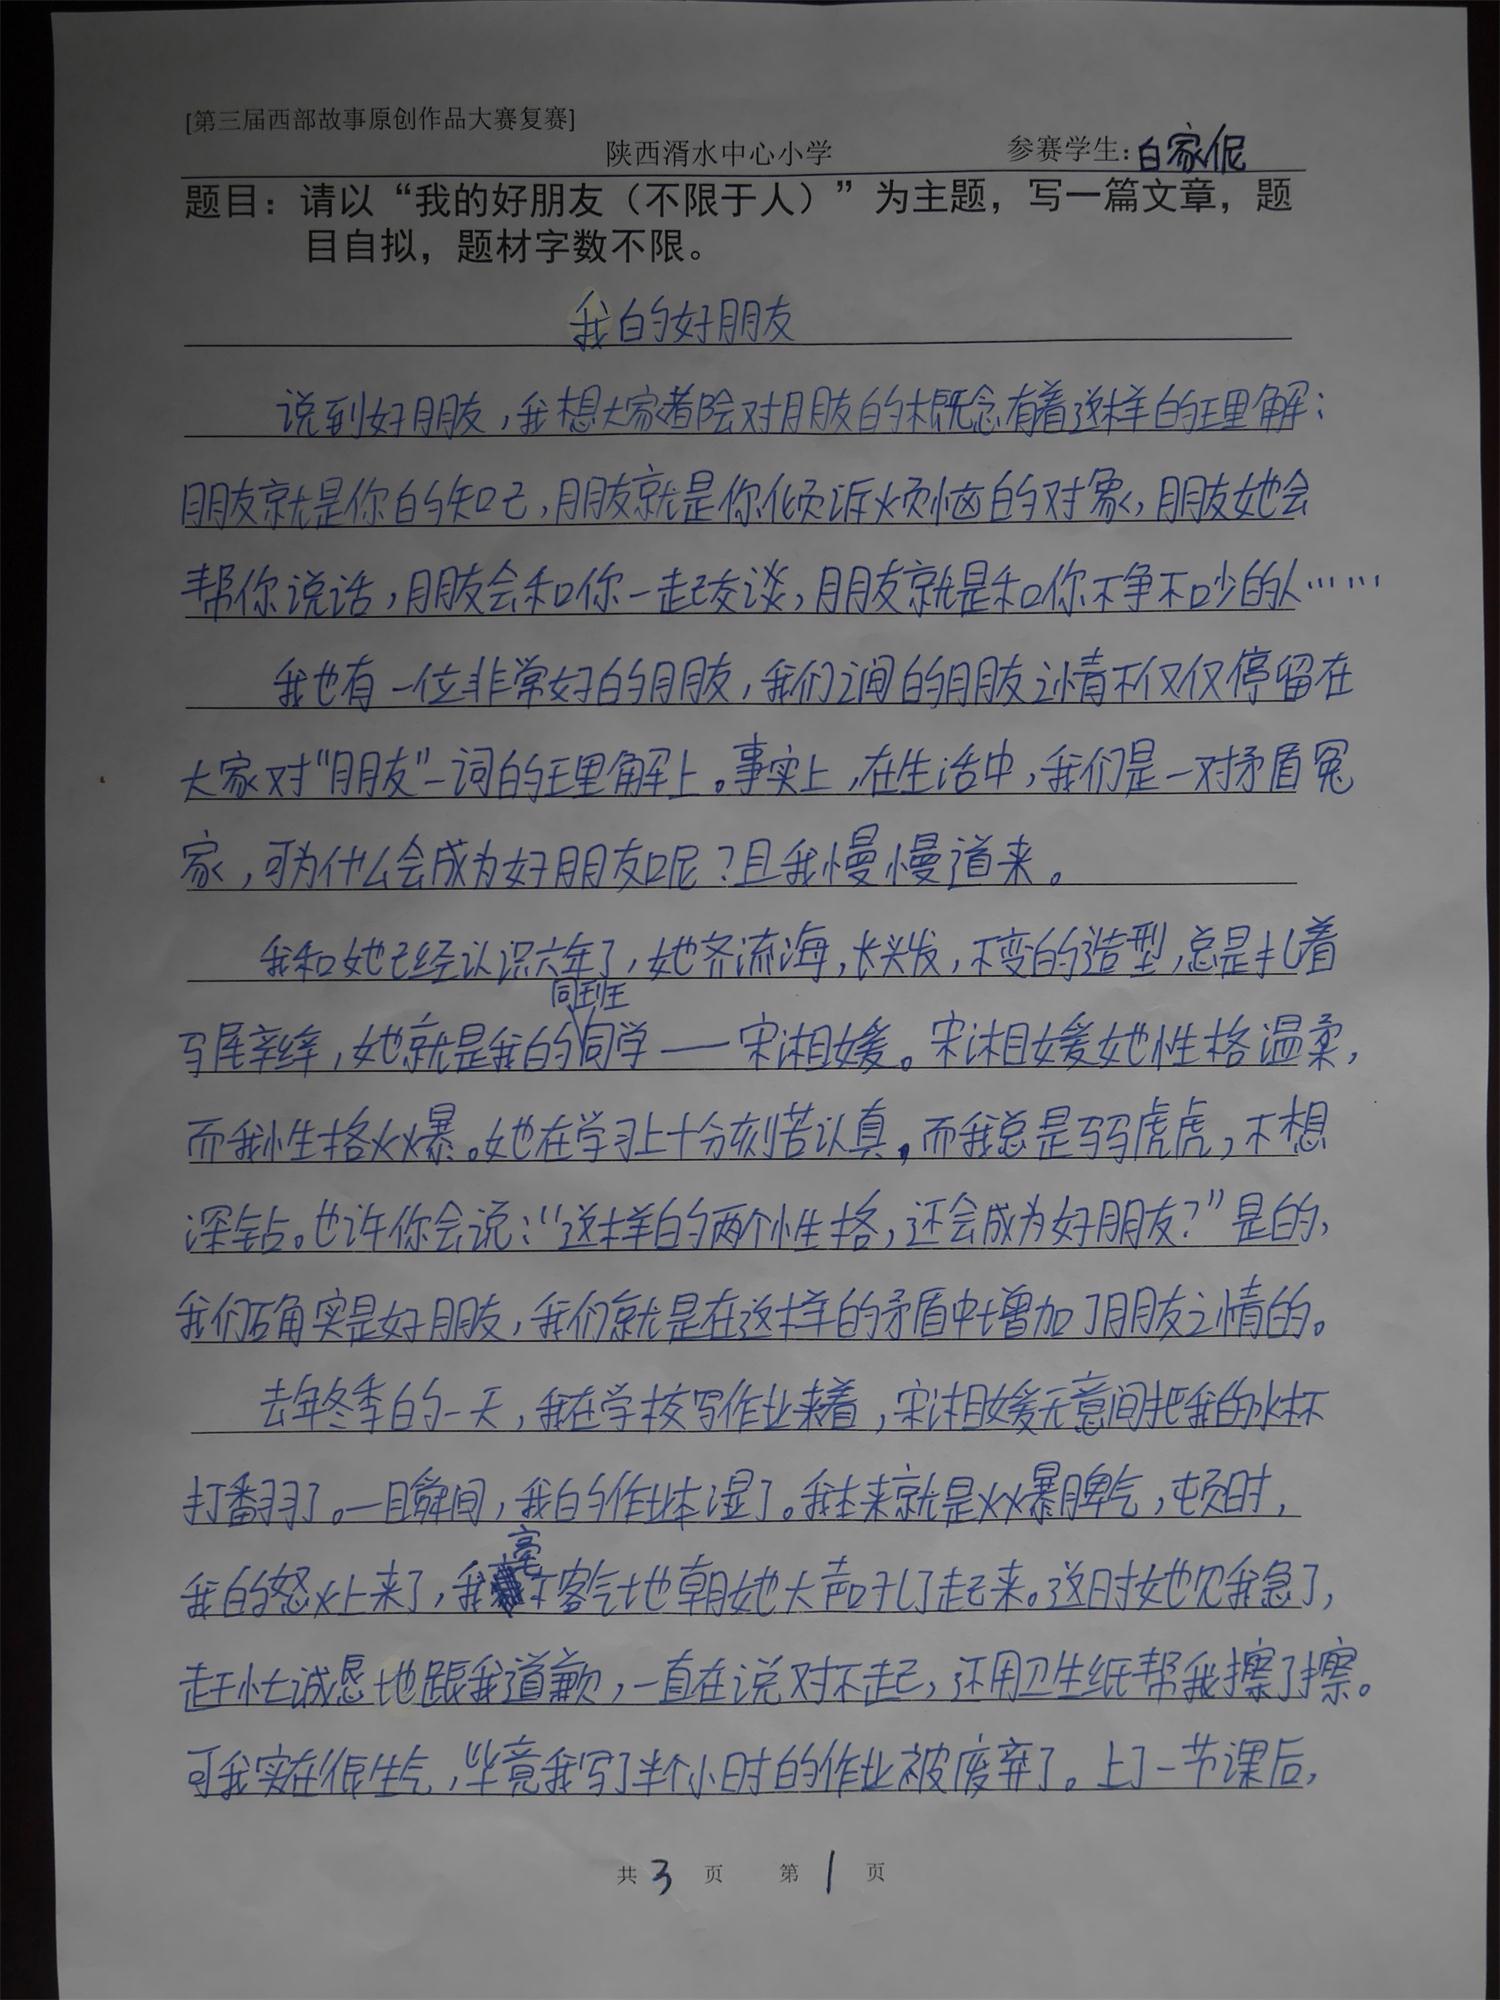 [第三届西部故事原创作品大赛复赛]
陕西湑水中心小学 参赛学生:白家伲
题目：请以“我的好朋友（不限于人）”为主题，写一篇文章，题
目自拟，题材字数不限。
我的好朋友
说到好朋友，我想大家都会对朋友的概念有着这样的理解：
朋友就是你的知己，朋友就是你倾诉烦恼的对象，朋友她会
帮你说话，朋友会和你一起交谈，朋友就是和你不争不吵的人……
我也有一位非常好的朋友，我们之间的朋友之情不仅仅停留在
大家对“朋友”一词的理解上。事实上，在生活中，我们是一对矛盾冤
家，可为什么会成为好朋友呢？且我慢慢道来。
我和她已经认识六年了，她齐流海，长头发，不变的造型，总是扎着
马尾辫，她就是我的同班同学——宋湘媛。宋湘媛她性格温柔，
而我性格火暴。她在学习上十分刻苦认真，而我总是马马虎虎，不想
深钻。也许你会说：“这样的两个性格，还会成为好朋友？”是的，
我们确实是好朋友，我们就是在这样的矛盾中增加了朋友之情的。
去年冬季的一天，我在学校写作业来着，宋湘媛无意间把我的水杯
打翻了。一瞬间，我的作业本湿了。我本来就是火暴脾气，顿时，
我的怒火上来了，我毫不客气地朝她大声吼了起来。这时她见我急了，
赶忙诚恳地跟我道歉，一直在说对不起，还用卫生纸帮我擦了擦。
可我实在很生气，毕竟我写了半个小时的作业被废弃了。上了一节课后，
共3页 第1页